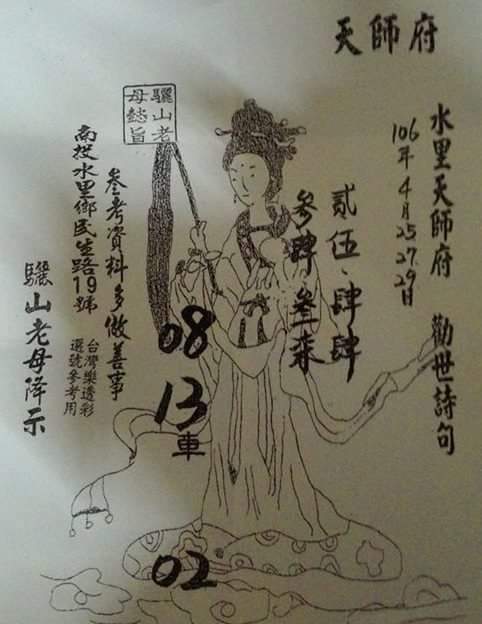 天師府
水里天師府 勸世詩句
106年4月25.27.29日
貳伍、肆肆
參肆 叁柒
驪山老
母懿旨
參考資料多做善事
南投水里鄉民生路19號
台灣樂透彩
選號參考用
驪山老母降示
08
13車
02